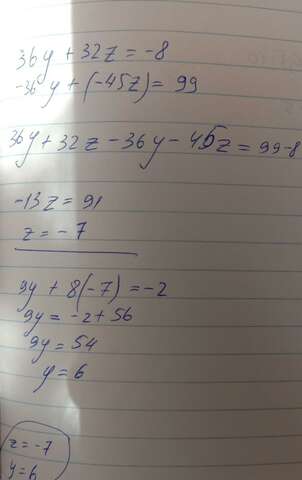 36y + 32z = -8
-36y + (-45z) = 99
36y + 32z - 36y - 45z = 99-8
-13z = 91
z = -7
9y + 8(-7) = -2
9y = -2 + 56
9y = 54
y = 6
z = -7
y = 6